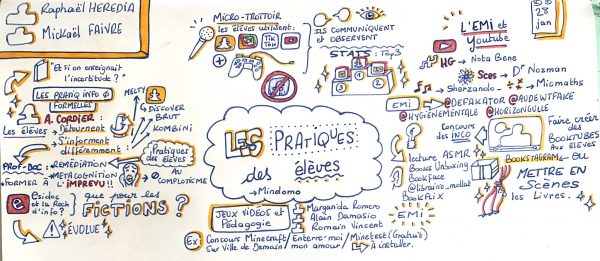 Raphaël HEREDIA
Mickaël FAIVRE
"Et si on enseignait
l'incertitude?"
LES PRATIQ INFO Ø
FORMELLES
A. CORDIER:
Les élèves → Détournent
→ S'informent
différemment
MELTY
DISCOVER
BRUT
KOMBINI
Pratiques
des élèves
PROF-DOC: → REMÉDIATION
→ METACOGNITION
→ FORMER À L'IMPREVU!!
Ø AU
COMPLOTISME
Esidoc
et la Rech
d'info?
que pour les
FICTIONS?
ÉVOLUE
MICRO-TROTTOIR
les élèves utilisent:
TIK
TOK
ILS COMMUNIQUENT
ET OBSERVENT
STATS: Top 3
1
2
3
LES PRATIQUES
des élèves
→ Mindomo
JEUX VIDÉOS et
Pédagogie
Margarida Romero
Alain Damasio
Romain Vincent
EMI
Ex: Concours Minecraft/ Enterre-moi/ Minetest (Gratuit)
Sur Ville de Demain/ mon amour/ → À installer.
23
jan
L'EMI et
Youtube
HG → Nota Bene
Sces → Dr Nozman
→ Micmaths
→ Sherzando
EMI → @DEFAKATOR @AUDEWTFAKE
@HYGIENEMENTALE @HORIZONGULLE
Concours
des INCO
Faire créer
des
BOOKTUBES
AUX ELEVES
lecture ASMR
Books Unboxing
Bookface
@librairie_mollat
Bookflix
BOOKSTAGRAM ou
METTRE EN
Scènes
les Livres.